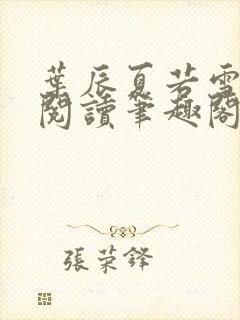 葉辰夏若雪
閱讀筆趣閣
張荣鋒